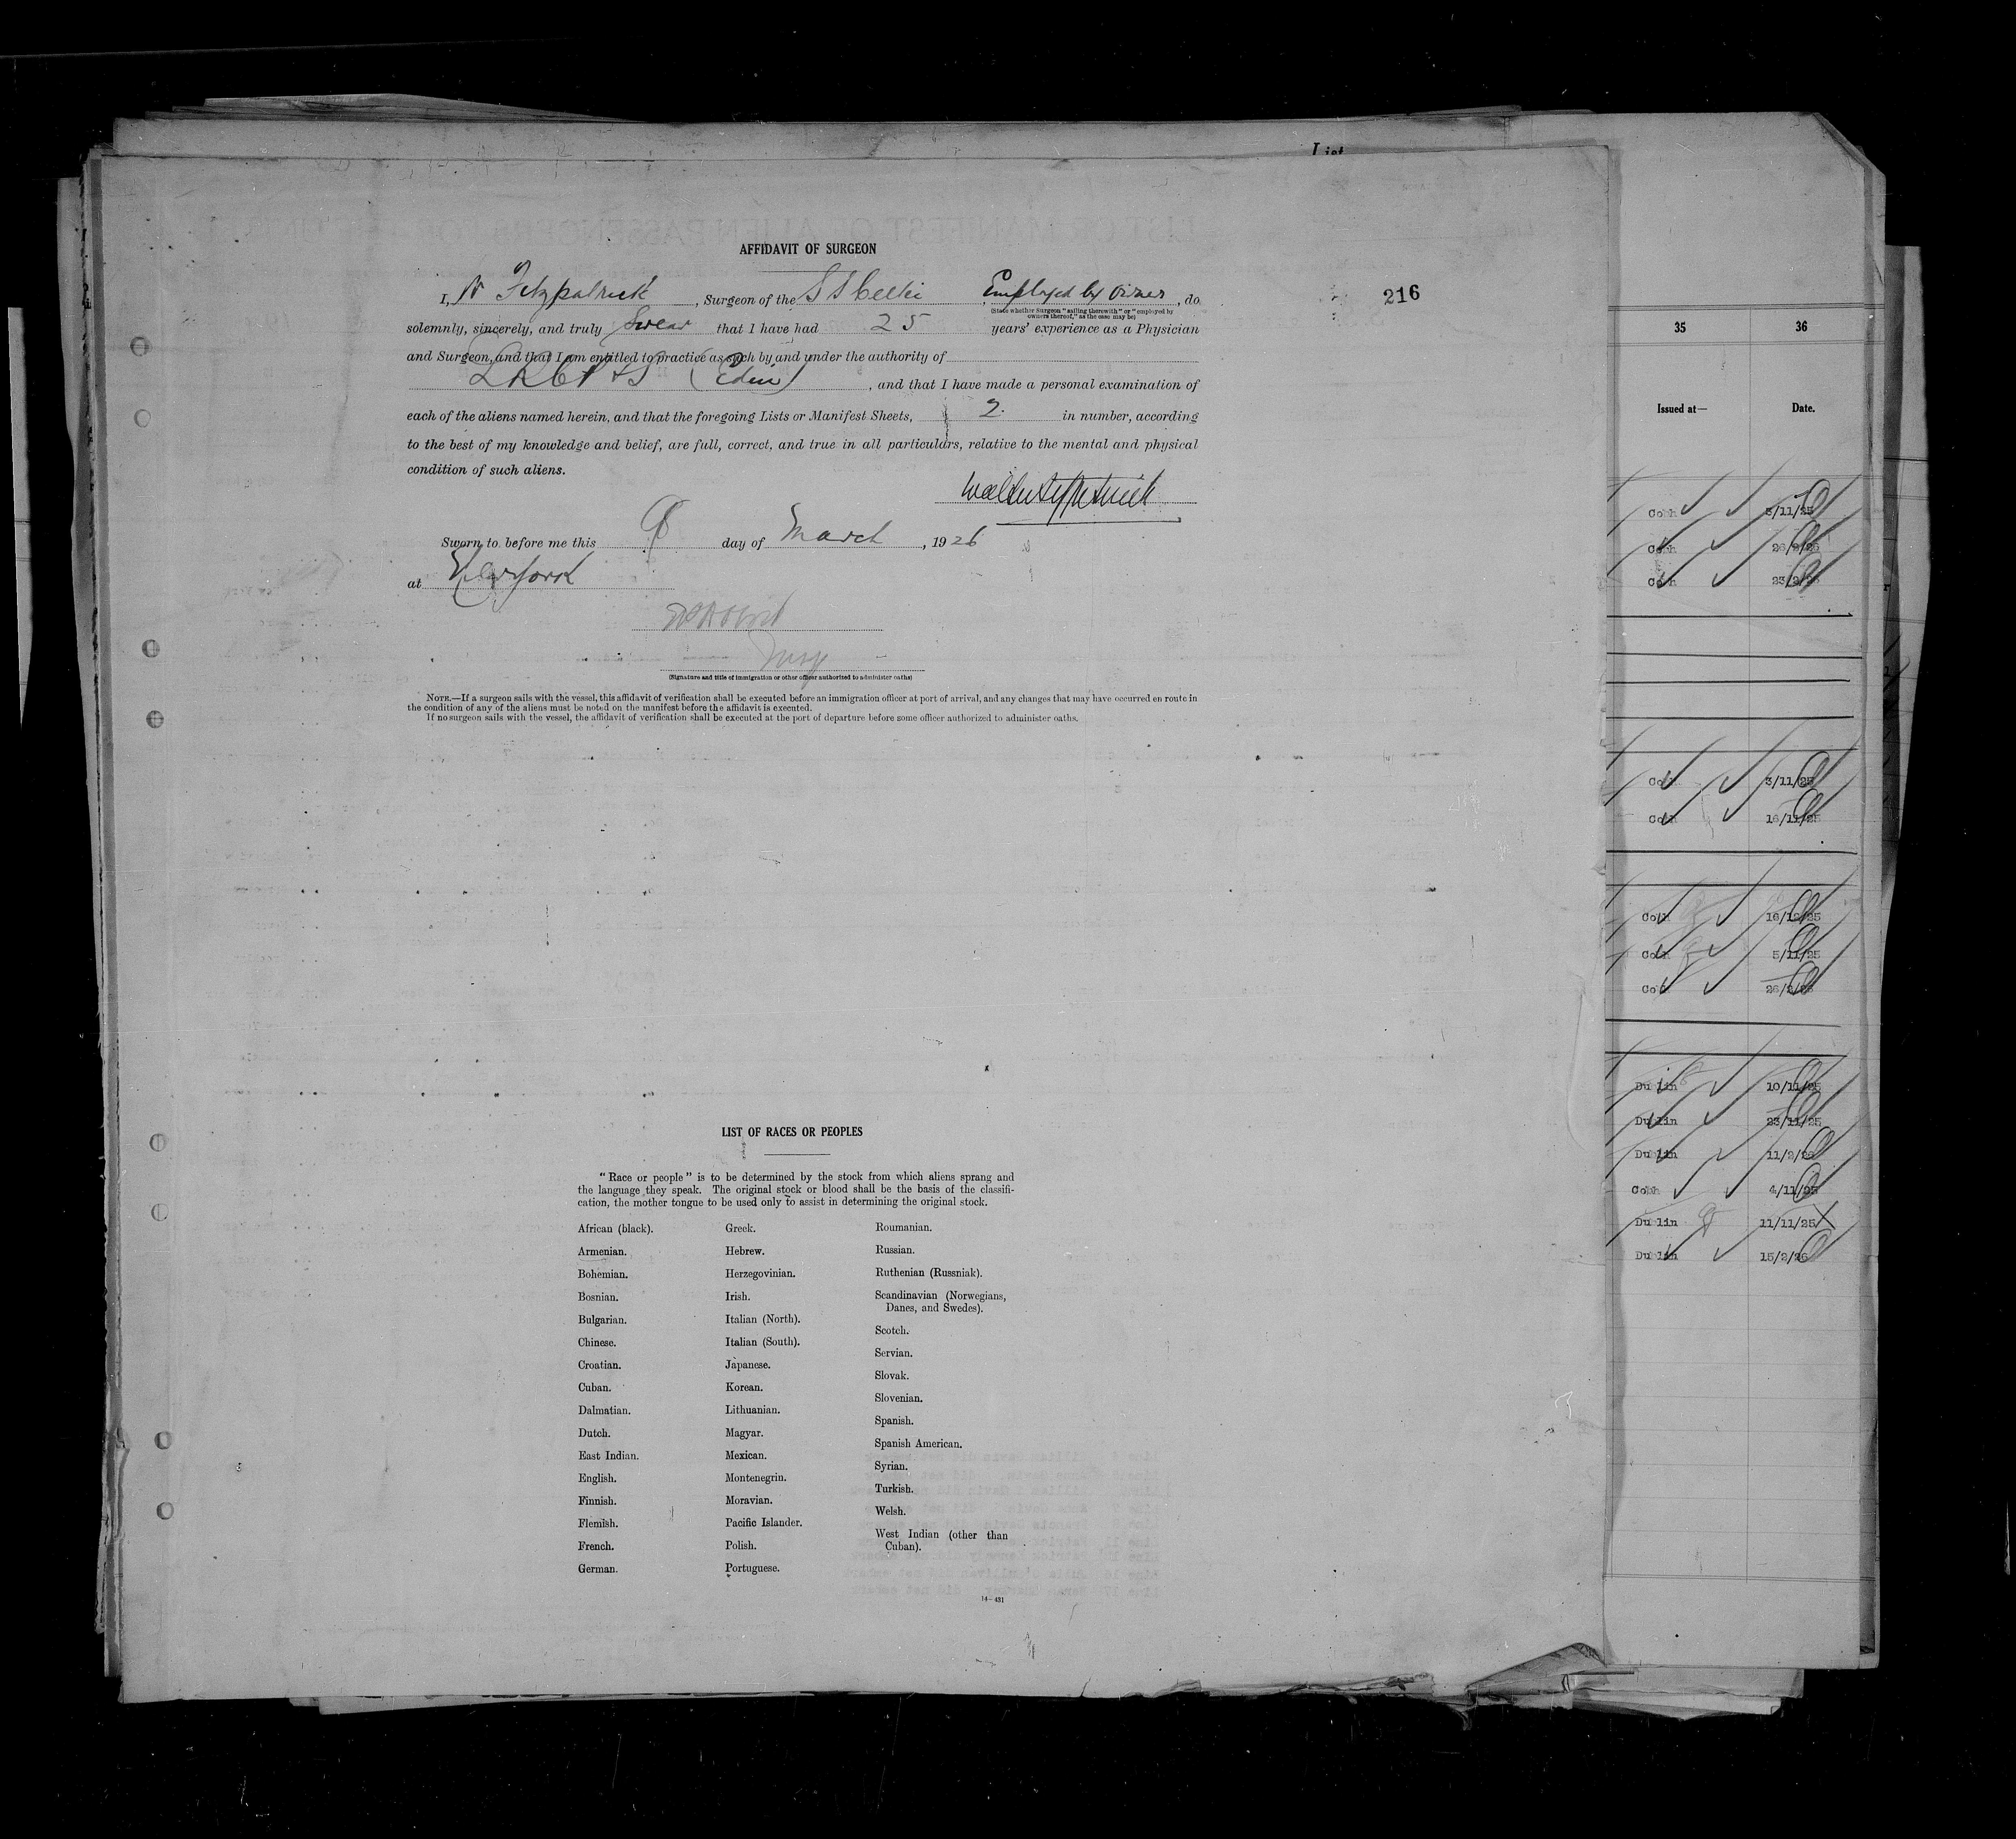 List
AFFIDAVIT OF SURGEON
I, W Fitzpatrick, Surgeon of the S S Celtic Employed by Owner, do
(State whether Surgeon "sailing therewith" or "employed by
owners thereof," as the case may be)
216
solemnly, sincerely, and truly Swear that I have had 25 years' experience as a Physician
and Surgeon, and that I am entitled to practice as such by and under the authority of
LRCP & S (Edin), and that I have made a personal examination of
each of the aliens named herein, and that the foregoing Lists or Manifest Sheets, 2. in number, according
to the best of my knowledge and belief, are full, correct, and true in all particulars, relative to the mental and physical
condition of such aliens.
Walter Fitzpatrick
Sworn to before me this day of March, 1926
at New York
Insp
(Signature and title of immigration or other officer authorized to administer oaths)
NOTE.—If a surgeon sails with the vessel, this affidavit of verification shall be executed before an immigration officer at port of arrival, and any changes that may have occurred en route in
the condition of any of the aliens must be noted on the manifest before the affidavit is executed.
If no surgeon sails with the vessel, the affidavit of verification shall be executed at the port of departure before some officer authorized to administer oaths.
LIST OF RACES OR PEOPLES
"Race or people" is to be determined by the stock from which aliens sprang and
the language they speak. The original stock or blood shall be the basis of the classifi-
cation, the mother tongue to be used only to assist in determining the original stock.
African (black).
Armenian.
Bohemian.
Bosnian.
Bulgarian.
Chinese.
Croatian.
Cuban.
Dalmatian.
Dutch.
East Indian.
English.
Finnish.
Flemish.
French.
German.
Greek.
Hebrew.
Herzegovinian.
Irish.
Italian (North).
Italian (South).
Japanese.
Korean.
Lithuanian.
Magyar.
Mexican.
Montenegrin.
Moravian.
Pacific Islander.
Polish.
Portuguese.
Roumanian.
Russian.
Ruthenian (Russniak).
Scandinavian (Norwegians,
Danes, and Swedes).
Scotch.
Servian.
Slovak.
Slovenian.
Spanish.
Spanish American.
Syrian.
Turkish.
Welsh.
West Indian (other than
Cuban).
14—431
35 36
Issued at— Date.
Cobh 5/11/25
Cobh 26/2/26
Cobh 23/2/26
Cobh 3/11/25
Cobh 16/11/25
Cobh 16/12/25
Cobh 5/11/25
Cobh 26/2/26
Dublin 10/11/25
Dublin 23/11/25
Dublin 11/2/26
Cobh 4/11/25
Dublin 11/11/25
Dublin 15/2/26